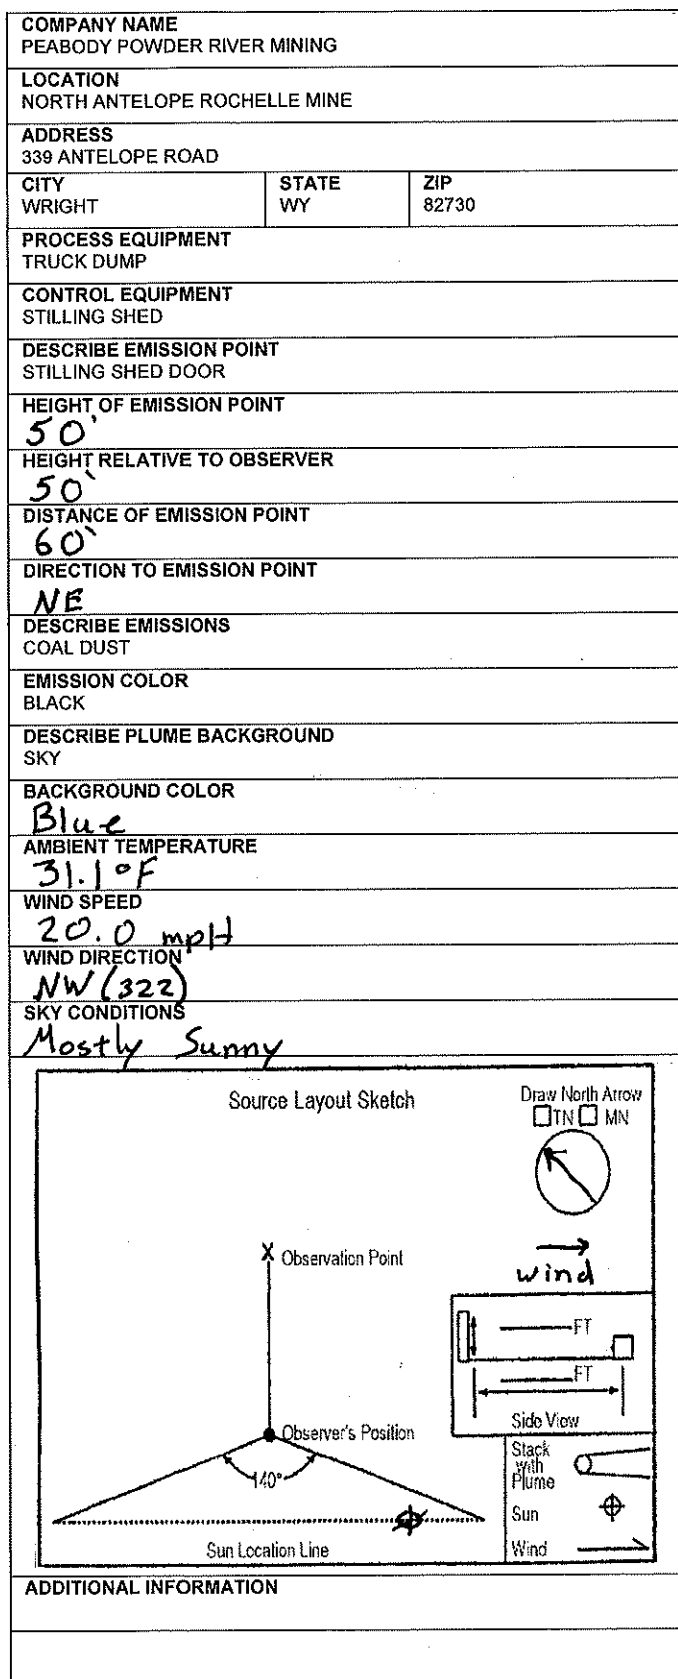 COMPANY NAME
PEABODY POWDER RIVER MINING
LOCATION
NORTH ANTELOPE ROCHELLE MINE
ADDRESS
339 ANTELOPE ROAD
CITY STATE ZIP
WRIGHT WY 82730
PROCESS EQUIPMENT
TRUCK DUMP
CONTROL EQUIPMENT
STILLING SHED
DESCRIBE EMISSION POINT
STILLING SHED DOOR
HEIGHT OF EMISSION POINT
50'
HEIGHT RELATIVE TO OBSERVER
50'
DISTANCE OF EMISSION POINT
60'
DIRECTION TO EMISSION POINT
NE
DESCRIBE EMISSIONS
COAL DUST
EMISSION COLOR
BLACK
DESCRIBE PLUME BACKGROUND
SKY
BACKGROUND COLOR
Blue
AMBIENT TEMPERATURE
31.1 °F
WIND SPEED
20.0 mpH
WIND DIRECTION
NW (322)
SKY CONDITIONS
Mostly Sunny
Source Layout Sketch
Draw North Arrow
TN MN
X Observation Point
wind
FT
FT
Side View
Observer's Position
140°
Sun Location Line
Stack
with
Plume
Sun
Wind
ADDITIONAL INFORMATION